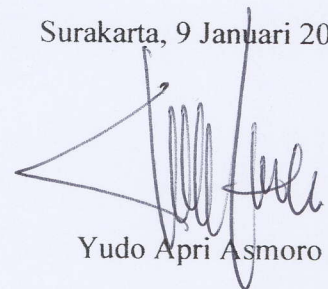 Surakarta, 9 Januari 20
Yudo Apri Asmoro